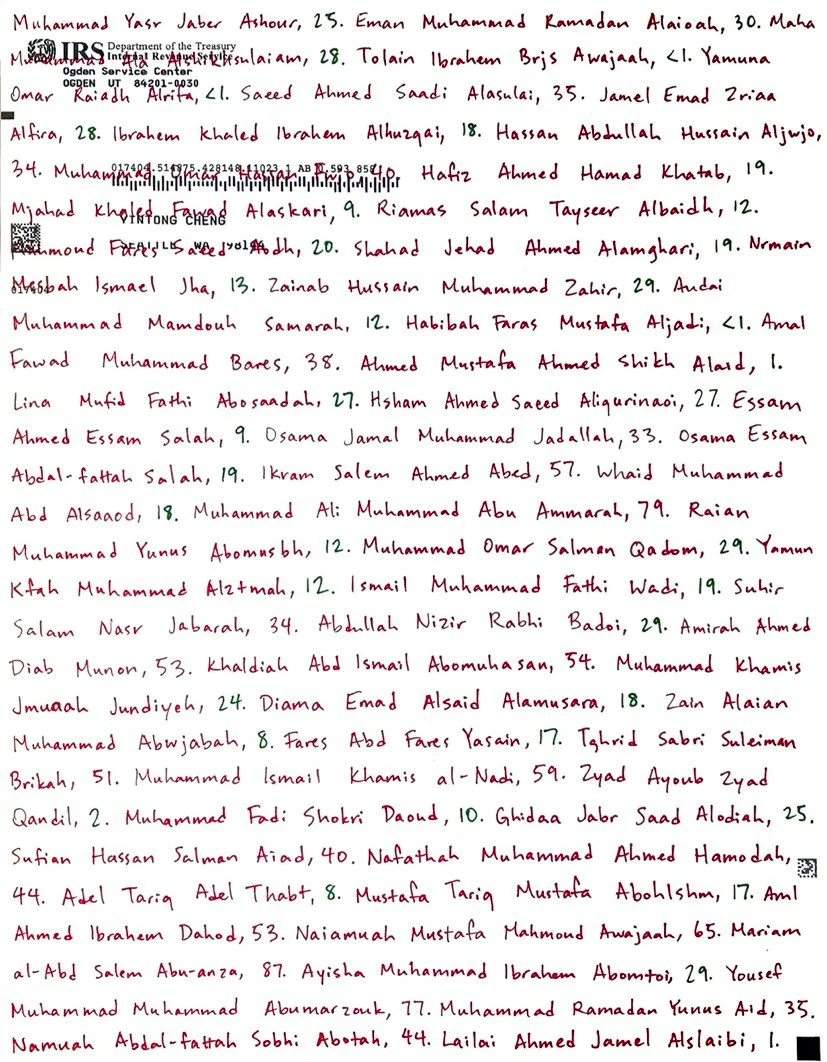 Muhammad Yasr Jaber Ashour, 25. Eman Muhammad Ramadan Alaioah, 30. Maha
IRS Department of the Treasury
Internal Revenue Service
Muhammad Ala Alshikhsulaiam, 28. Tolain Ibrahem Brjs Awajaah, <1. Yamuna
Ogden Service Center
OGDEN UT 84201-0030
Omar Raiadh Alrifa, <1. Saeed Ahmed Saadi Alasulai, 35. Jamel Emad Zriaa
Alfira, 28. Ibrahem Khaled Ibrahem Alhuzqai, 18. Hassan Abdullah Hussain Aljwjo,
017404.514875.428148.11023 1 AB 593 858
34. Muhammad Omar Hassan 40. Hafiz Ahmed Hamad Khatab, 19.
Mjahad Khaled Fawad Alaskari, 9. Riamas Salam Tayseer Albaidh, 12.
YINTONG CHENG
Mahmoud Fares Saeed Abdh, 20. Shahad Jehad Ahmed Alamghari, 19. Nrmain
SEATTLE WA
017404
Mesbah Ismael Jha, 13. Zainab Hussain Muhammad Zahir, 29. Audai
Muhammad Mamdouh Samarah, 12. Habibah Faras Mustafa Aljadi, <1. Amal
Fawad Muhammad Bares, 38. Ahmed Mustafa Ahmed Shikh Alaid, 1.
Lina Mufid Fathi Abosaadah, 27. Hsham Ahmed Saeed Aliqurinaoi, 27. Essam
Ahmed Essam Salah, 9. Osama Jamal Muhammad Jadallah, 33. Osama Essam
Abdal-fattah Salah, 19. Ikram Salem Ahmed Abed, 57. Whaid Muhammad
Abd Alsaaod, 18. Muhammad Ali Muhammad Abu Ammarah, 79. Raian
Muhammad Yunus Abomusbh, 12. Muhammad Omar Salman Qadom, 29. Yamun
Kfah Muhammad Alztmah, 12. Ismail Muhammad Fathi Wadi, 19. Suhir
Salam Nasr Jabarah, 34. Abdullah Nizir Rabhi Badoi, 29. Amirah Ahmed
Diab Munon, 53. Khaldiah Abd Ismail Abomuhasan, 54. Muhammad Khamis
Jmuaah Jundiyeh, 24. Diama Emad Alsaid Alamusara, 18. Zain Alaian
Muhammad Abwjabah, 8. Fares Abd Fares Yasain, 17. Tghrid Sabri Suleiman
Brikah, 51. Muhammad Ismail Khamis al-Nadi, 59. Zyad Ayoub Zyad
Qandil, 2. Muhammad Fadi Shokri Daoud, 10. Ghidaa Jabr Saad Alodiah, 25.
Sufian Hassan Salman Aiad, 40. Nafathah Muhammad Ahmed Hamodah,
44. Adel Tariq Adel Thabt, 8. Mustafa Tariq Mustafa Abohlshm, 17. Aml
Ahmed Ibrahem Dahod, 53. Naiamuah Mustafa Mahmoud Awajaah, 65. Mariam
al-Abd Salem Abu-anza, 87. Ayisha Muhammad Ibrahem Abomtoi, 29. Yousef
Muhammad Muhammad Abumarzouk, 77. Muhammad Ramadan Yunus Aid, 35.
Namuah Abdal-fattah Sobhi Abotah, 44. Lailai Ahmed Jamel Alslaibi, 1.